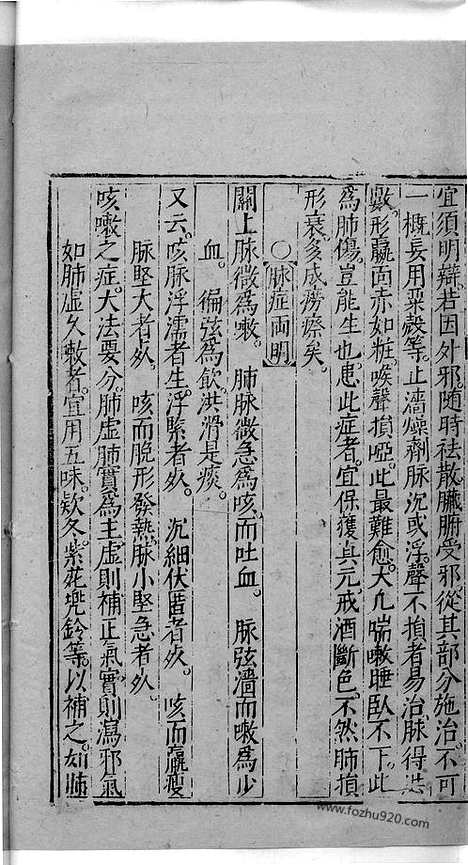 宜須明辯。若因外邪。隨時祛散。臟腑受邪。從其部分施治。不可
一概長用粟殼等。止濇燥劑。脉沉或浮。聲不損者易治。脉得洪
數。形羸面赤如粧。喉聲損啞。此最難愈。大凢喘嗽睡臥不下。此
爲肺傷。豈能生也。患此症者。宜保獲真元。戒酒斷色。不然肺損
形衰。多成癆瘵矣。
○脉症両明
關上脉微爲嗽。 肺脉微急爲咳而吐血。 脉弦濇而嗽爲少
血。 偏弦爲飲。洪滑是痰。
又云。咳脉浮濡者生。浮緊者死。 沉細伏匿者死。 咳而羸瘦
脉堅大者死。 咳而脫形發熱。脉小堅急者死。
咳嗽之症。大法要分。肺虛肺實爲主。虛則補正氣。實則瀉邪氣
如肺虛久嗽者。宜用五味。欵冬。紫菀。兜鈴等。以補之。如肺
www.fozhu920.com